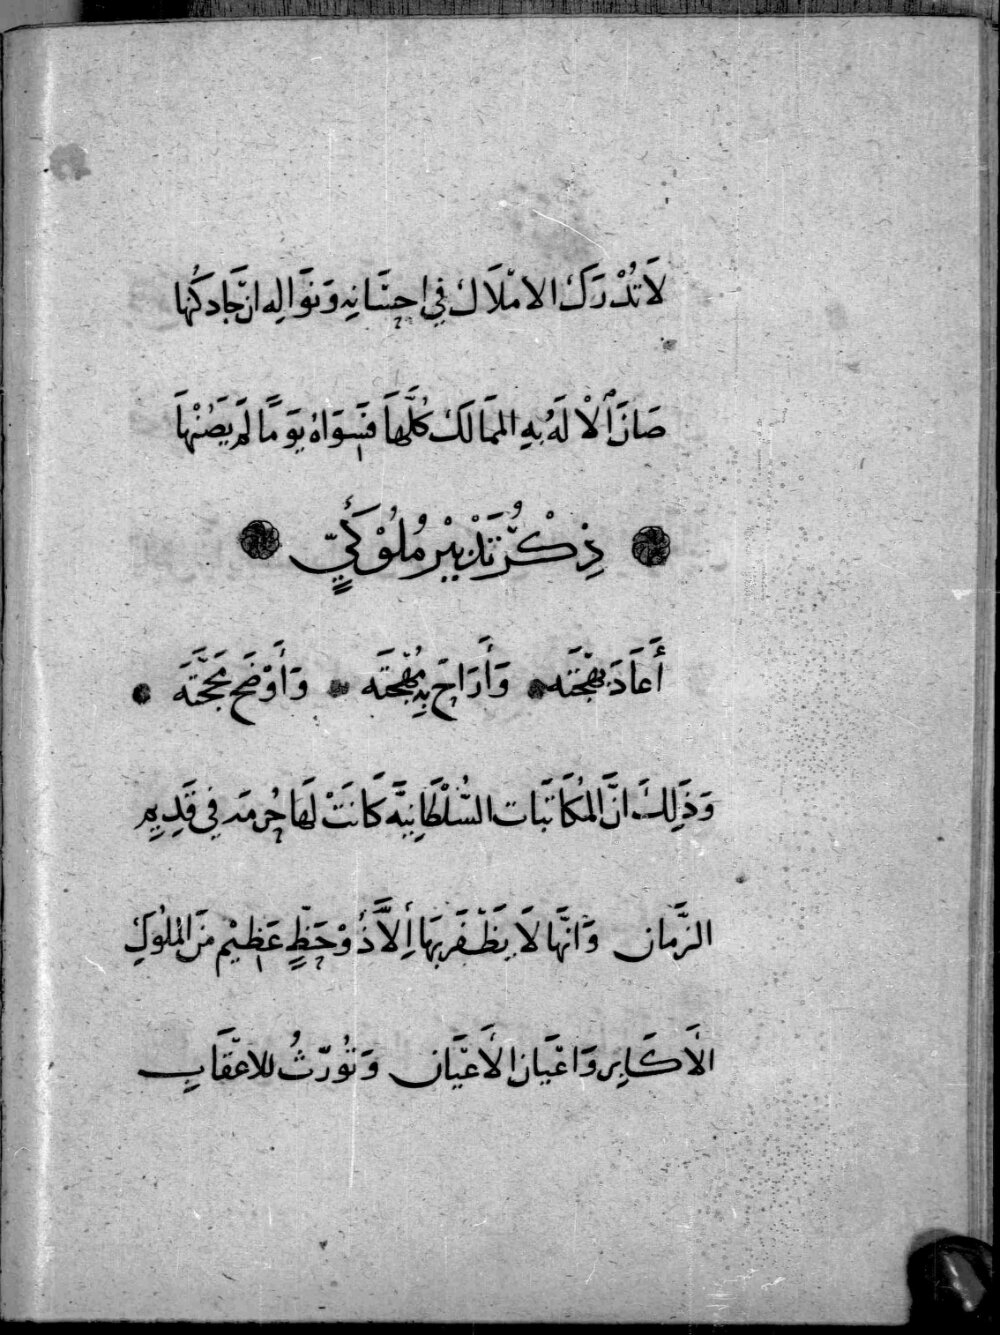 لَا تُدْرَكُ الامْلَاكُ فِي احِسَانِهِ وَنَوَالِهِ ان جَادَ كُنْهَا
صَانَ ٱلْالَهُ بِهِ المَمَالِكَ كُلَّهَا فَسِوَاهُ يَوَمًا لَم يَصُنْهَا
ذِكْرُ تَدْبِيْرٍ مُلُوْكَيٍّ
أَعَادَ بَهْجَتَه وَأَرَاحَ بِهِ مُهْجَتَه وَأَوْضَحَ مَحَجَّتَه
وَذَلِكَ انَّ المُكَاتَبَات السُّلْطَانِيَّه كَانَتْ لَهَا حُرمَه فِي قَدِيِمِ
الزَّمان وَانَّهَا لَا يَظْفَر بِهَا إِلَّا ذُوْ حَظٍّ عَظِيْمٍ مِنَ المُلُوكِ
الأَكَابِر وَاعْيَان الأَعْيَان وَتُورّثُ للاعْقَابِ